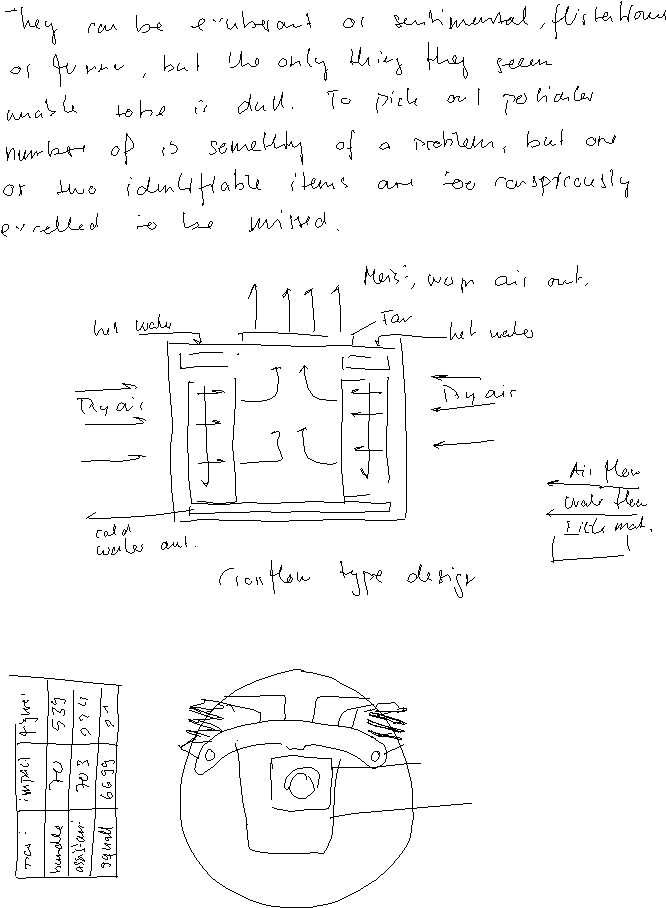 They can be exuberant or sentimental, flirtatious
or funny, but the only thing they seem
unable to be is dull. To pick out particular
number of is something of a problem, but one
or two identifiable items are too conspicuously
excelled to be missed.
Moist, warm air out.
Fan
hot water
hot water
Dry air
Dry air
Air flow
Water flow
cold
water out.
Crossflow type design
impact figure
handle 70 539
assistant 703
squall 6699